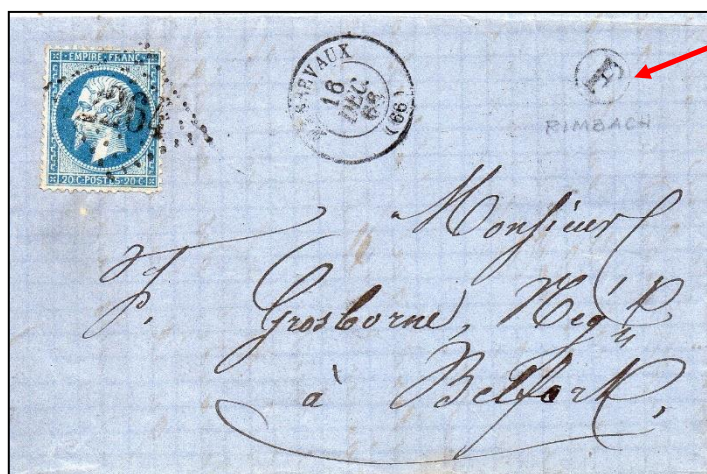 EMPIRE FRANC
2264
20C POSTES 20C
MASEVAUX
16
DEC
63
(66)
F
RIMBACH
Monsieur
F. Grosborne, Négt
à Belfort,